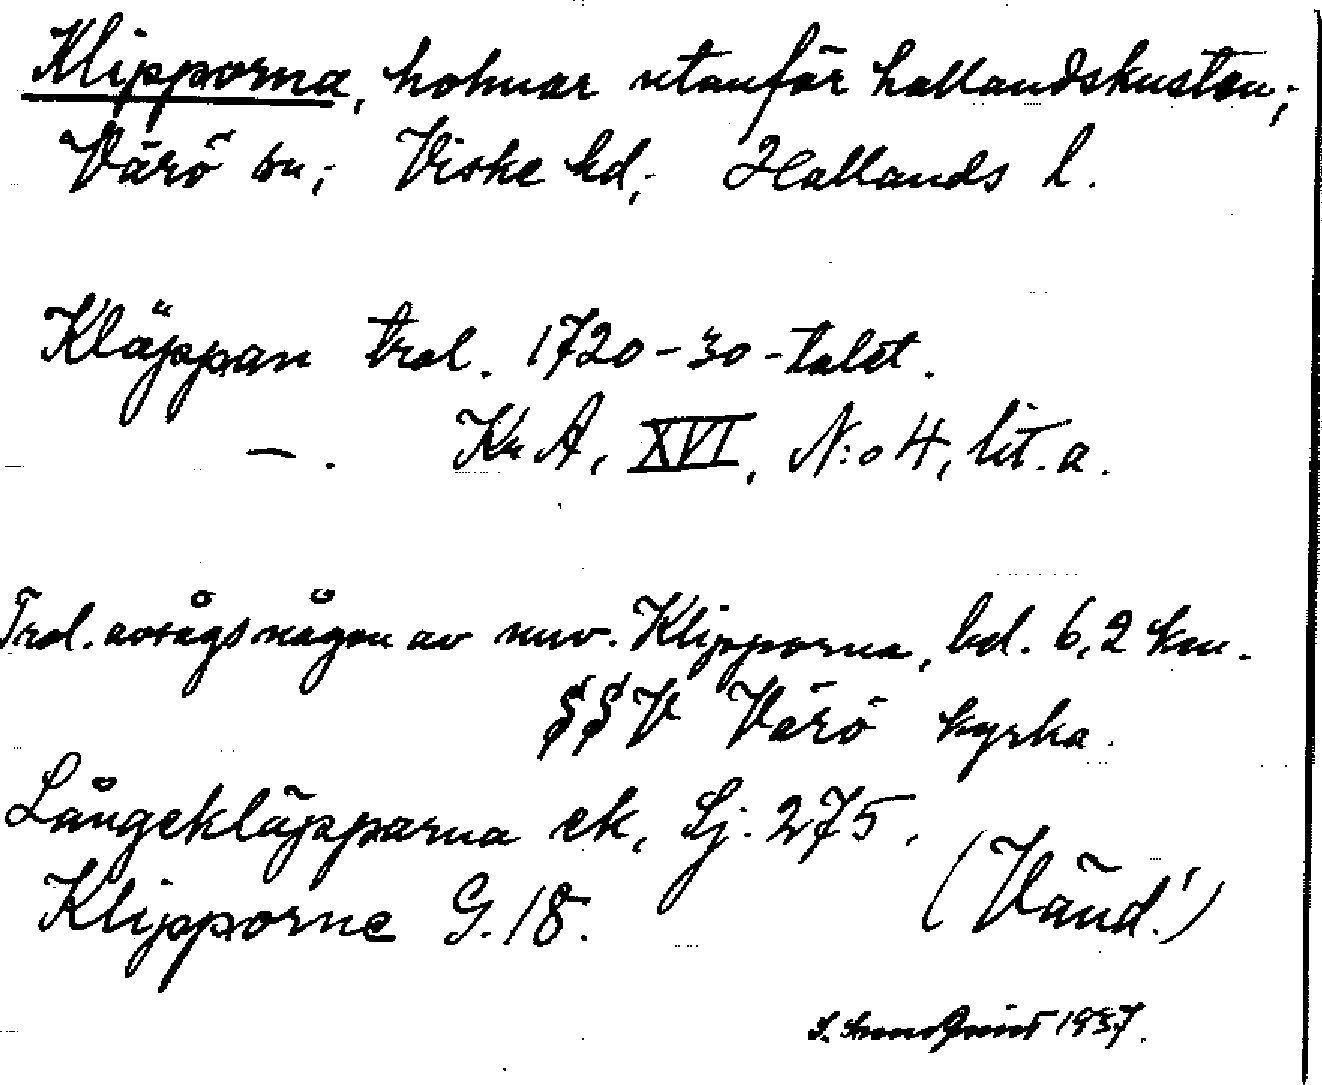 Klipporna, holmar utanför hallandskusten;
Värö sn; Viske hd; Hallands l.
Kläppan trol. 1720-30-talet.
—. Kr A, XVI, N:o 4, lit. a.
Trol. avsågs någon av nuv. Klipporna, bd. 6,2 km.
§§V Värö kyrka.
Långekläpparna ek, Sj. 275.
Klipporne G. 18.
(Vänd!)
1937.